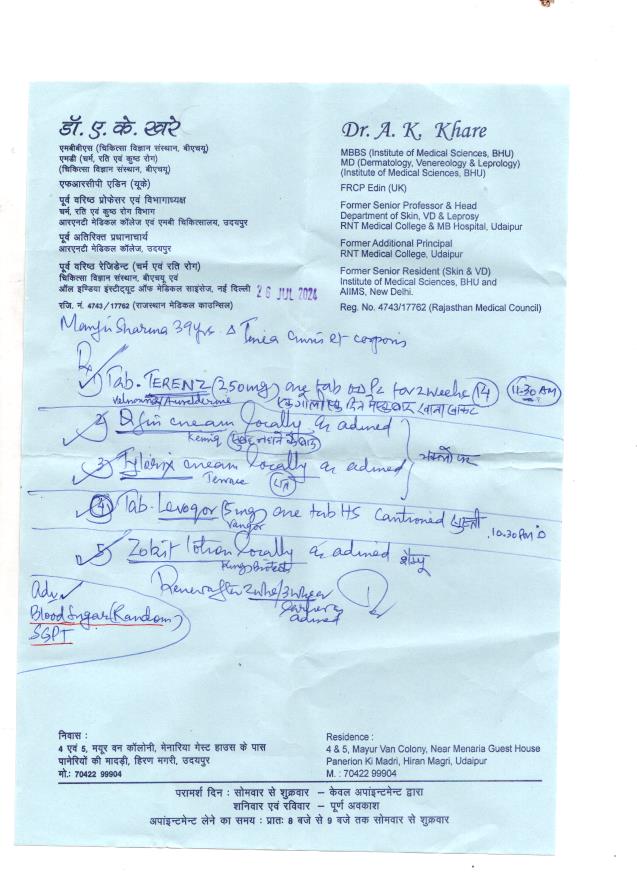 डॉ. ए. के. खरे
एमबीबीएस (चिकित्सा विज्ञान संस्थान, बीएचयू)
एमडी (चर्म, रति एवं कुष्ठ रोग)
(चिकित्सा विज्ञान संस्थान, बीएचयू)
एफआरसीपी एडिन (यूके)
पूर्व वरिष्ठ प्रोफेसर एवं विभागाध्यक्ष
चर्म, रति एवं कुष्ठ रोग विभाग
आरएनटी मेडिकल कॉलेज एवं एमबी चिकित्सालय, उदयपुर
पूर्व अतिरिक्त प्रधानाचार्य
आरएनटी मेडिकल कॉलेज, उदयपुर
पूर्व वरिष्ठ रेजिडेन्ट (चर्म एवं रति रोग)
चिकित्सा विज्ञान संस्थान, बीएचयू एवं
ऑल इण्डिया इंस्टीट्यूट ऑफ मेडिकल साइंसेज, नई दिल्ली
रजि. नं. 4743/17762 (राजस्थान मेडिकल काउन्सिल)
Dr. A. K. Khare
MBBS (Institute of Medical Sciences, BHU)
MD (Dermatology, Venereology & Leprology)
(Institute of Medical Sciences, BHU)
FRCP Edin (UK)
Former Senior Professor & Head
Department of Skin, VD & Leprosy
RNT Medical College & MB Hospital, Udaipur
Former Additional Principal
RNT Medical College, Udaipur
Former Senior Resident (Skin & VD)
Institute of Medical Sciences, BHU and
AIIMS, New Delhi.
Reg. No. 4743/17762 (Rajasthan Medical Council)
26 JUL 2024
Sharma 39yrs. Δ Tinea cruris et corporis
Rx
1) Tab. TERENZ (250mg) one tab for 2 weeks 14 11-30 AM
2) cream locally as advised
3) cream locally as advised
Terrace
4) Tab. (5mg) one tab HS 10.30 PM
5) lotion locally as advised
Review after 2wks/3weeks
earlier
advised
Adv
Blood Sugar (Random)
SGPT
निवास :
4 एवं 5, मयूर वन कॉलोनी, मेनारिया गेस्ट हाउस के पास
पानेरियों की मादड़ी, हिरण मगरी, उदयपुर
मो.: 70422 99904
Residence :
4 & 5, Mayur Van Colony, Near Menaria Guest House
Panerion Ki Madri, Hiran Magri, Udaipur
M. : 70422 99904
परामर्श दिन : सोमवार से शुक्रवार – केवल अपांइन्टमेन्ट द्वारा
शनिवार एवं रविवार – पूर्ण अवकाश
अपांइन्टमेन्ट लेने का समय : प्रातः 8 बजे से 9 बजे तक सोमवार से शुक्रवार